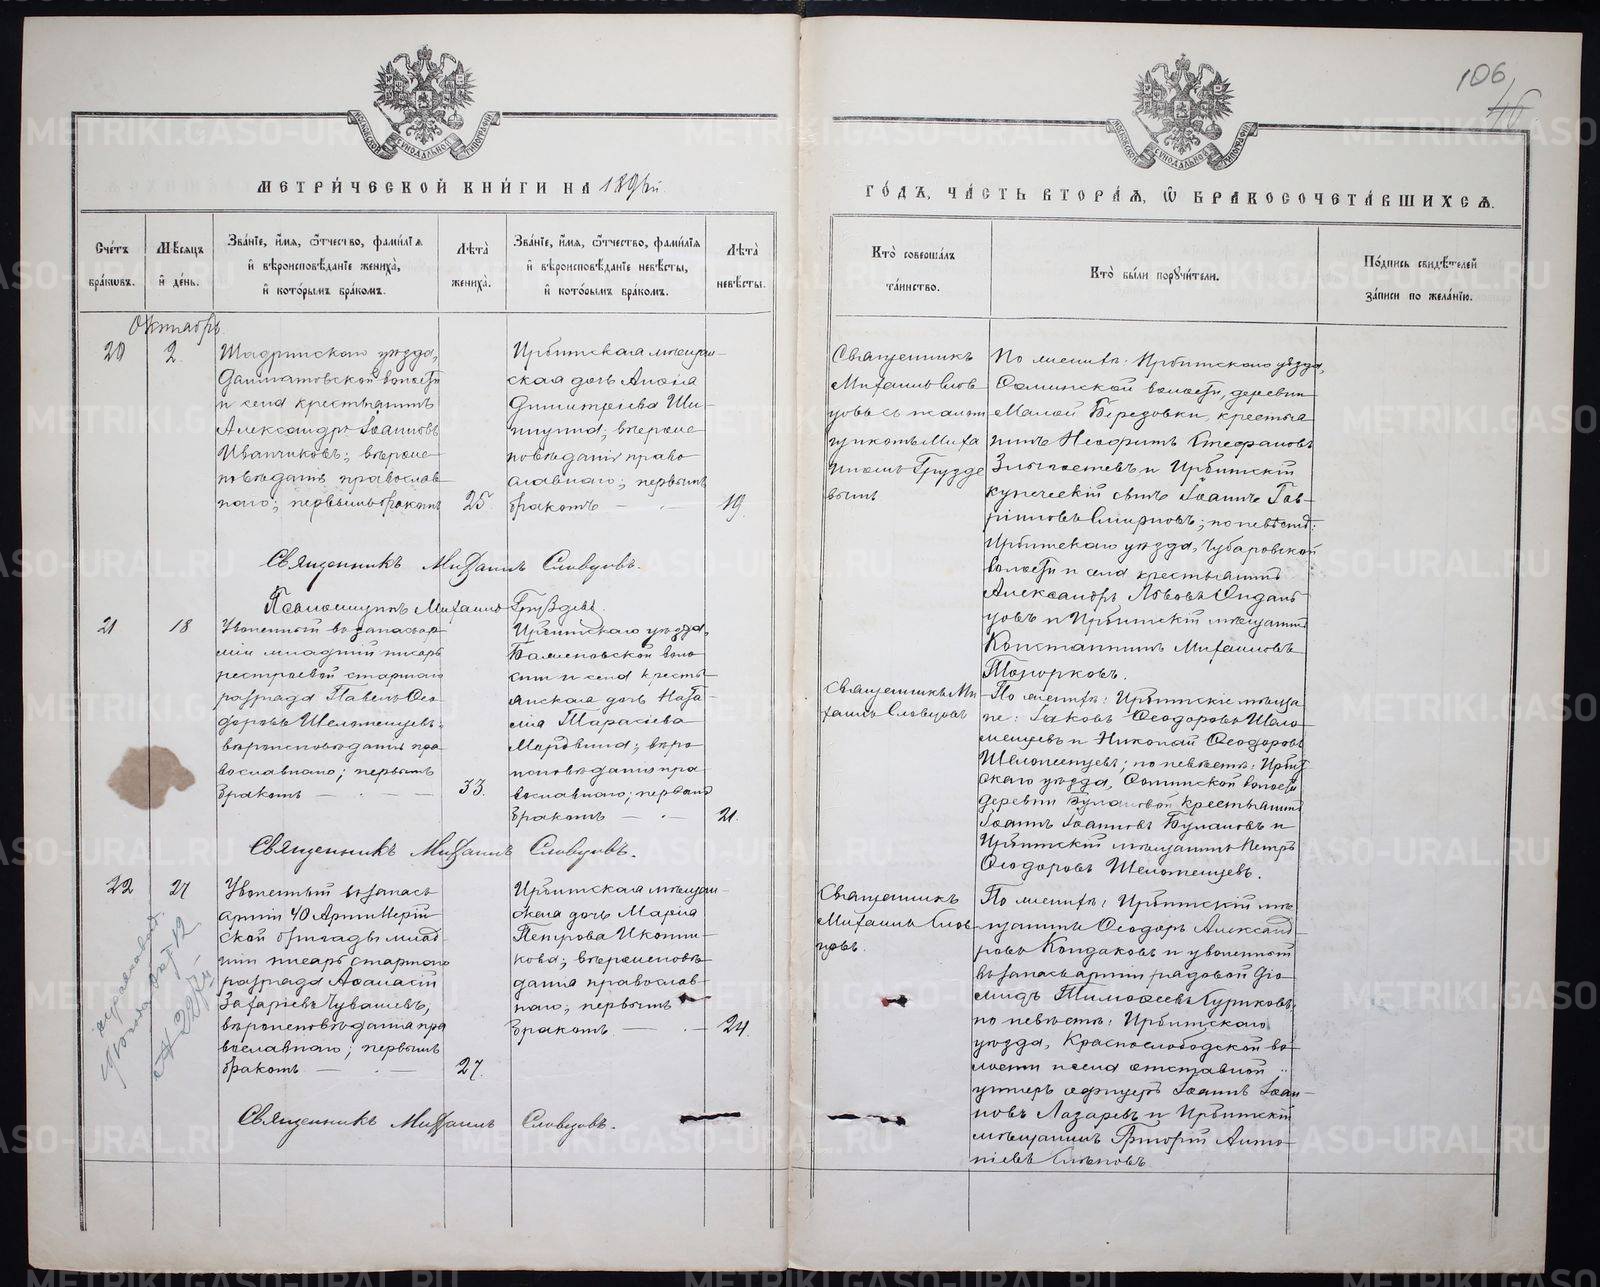 106
46
МЕТРИ́ЧЕСКОЙ КНИ́ГИ НА 189 й
ГО́ДЪ, ЧА́СТЬ ВТОРА́Я, Ѡ БРАКОСОЧЕТА́ВШИХСЯ.
Сче́тъ бра́ковъ.
Мѣ́сяцъ и де́нь.
Зва́нїе, и́мя, ѻ́тчество, фами́лїя
и вѣроисповѣ́данїе жениха̀,
и кото́рымъ бра́комъ.
Лѣ́та жениха̀.
Зва́нїе, и́мя, ѻ́тчество, фами́лїя
и вѣроисповѣ́данїе невѣ́сты,
и кото́рымъ бра́комъ.
Лѣ́та невѣ́сты.
Кто̀ соверша́лъ
та́инство.
Кто̀ бы́ли поручи́тели.
По́дпись свидѣ́телей
за́писи по жела́нїю.
Октябрь
20
2
Шадринскаго уѣзда,
Далматовской волости
и села крестьянинъ
Александръ Іоанновъ
Иванчиковъ; вѣроис
повѣданія православ
наго; первымъ бракомъ
25.
Ирбитская мѣщан-
ская дочь Анѳія
Димитріева Ши-
пицина; вѣроис
повѣданія право
славнаго; первымъ
бракомъ — . —
19.
Священникъ
Михаилъ Слов
цовъ съ псалом
щикомъ Миха
иломъ Груздe
вымъ
По женихѣ: Ирбитскаго уѣзда,
волости, деревни
Малой Бередовки, крестья
нинъ Неофитъ Стефановъ
Злыгостевъ и Ирбитскій
купеческій сынъ Іоаннъ Гав-
ріиловъ Смирновъ; по невѣстѣ:
Ирбитскаго уѣзда, Чубаровской
волости и села крестьянинъ
Александръ Львовъ
цовъ и Ирбитскій мѣщанинъ
Константинъ Михаиловъ
Топорковъ.
Священникъ Михаилъ Словцовъ.
Псаломщикъ Михаилъ Груздевъ.
21
18
Уволенный въ запасъ ар
міи младшій писарь
нестроевой старшаго
разряда Павелъ Ѳео
доровъ Шеломенцевъ.
вѣроисповѣданія пра
вославнаго; первымъ
бракомъ — . —
33.
Ирбитскаго уѣзда,
воло
сти и села кресть
янская дочь Ната
лія Тарасіева
Мордвина; вѣро
исповѣданія пра
вославнаго; первымъ
бракомъ — . —
21.
Священникъ Ми
хаилъ Словцовъ
По женихѣ: Ирбитскіе мѣща
не: Іаковъ Ѳеодоровъ Шело
менцевъ и Николай Ѳеодоровъ
Шеломенцевъ; по невѣстѣ: Ирбит
скаго уѣзда, волости
деревни Булановой крестьянинъ
Іоаннъ Іоанновъ Булановъ и
Ирбитскій мѣщанинъ Петръ
Ѳеодоровъ Шеломенцевъ.
Священникъ Михаилъ Словцовъ.
22
27
Уволенный въ запасъ
арміи 40 Артиллерій
ской бригады млад
шій писарь старшаго
разряда Аѳанасій
Захаріевъ Чувашевъ,
вѣроисповѣданія пра
вославнаго; первымъ
бракомъ — . —
27.
Ирбитская мѣщан-
ская дочь Марія
Петрова Иконни
кова; вѣроисповѣ
данія православ
наго; первымъ
бракомъ — . —
24.
Священникъ
Михаилъ Слов
цовъ.
По женихѣ: Ирбитскій мѣ
щанинъ Ѳеодоръ Александ
ровъ Кондаковъ и уволенный
въ запасъ арміи рядовой Діо
мидъ Тимоѳеевъ Куриковъ,
по невѣстѣ: Ирбитскаго
уѣзда, Краснослободской во
лости и села отставной
унтеръ офицеръ Іоаннъ Іоан-
новъ Лазаревъ и Ирбитскій
мѣщанинъ Григорій Анто
ніевъ
Священникъ Михаилъ Словцовъ.